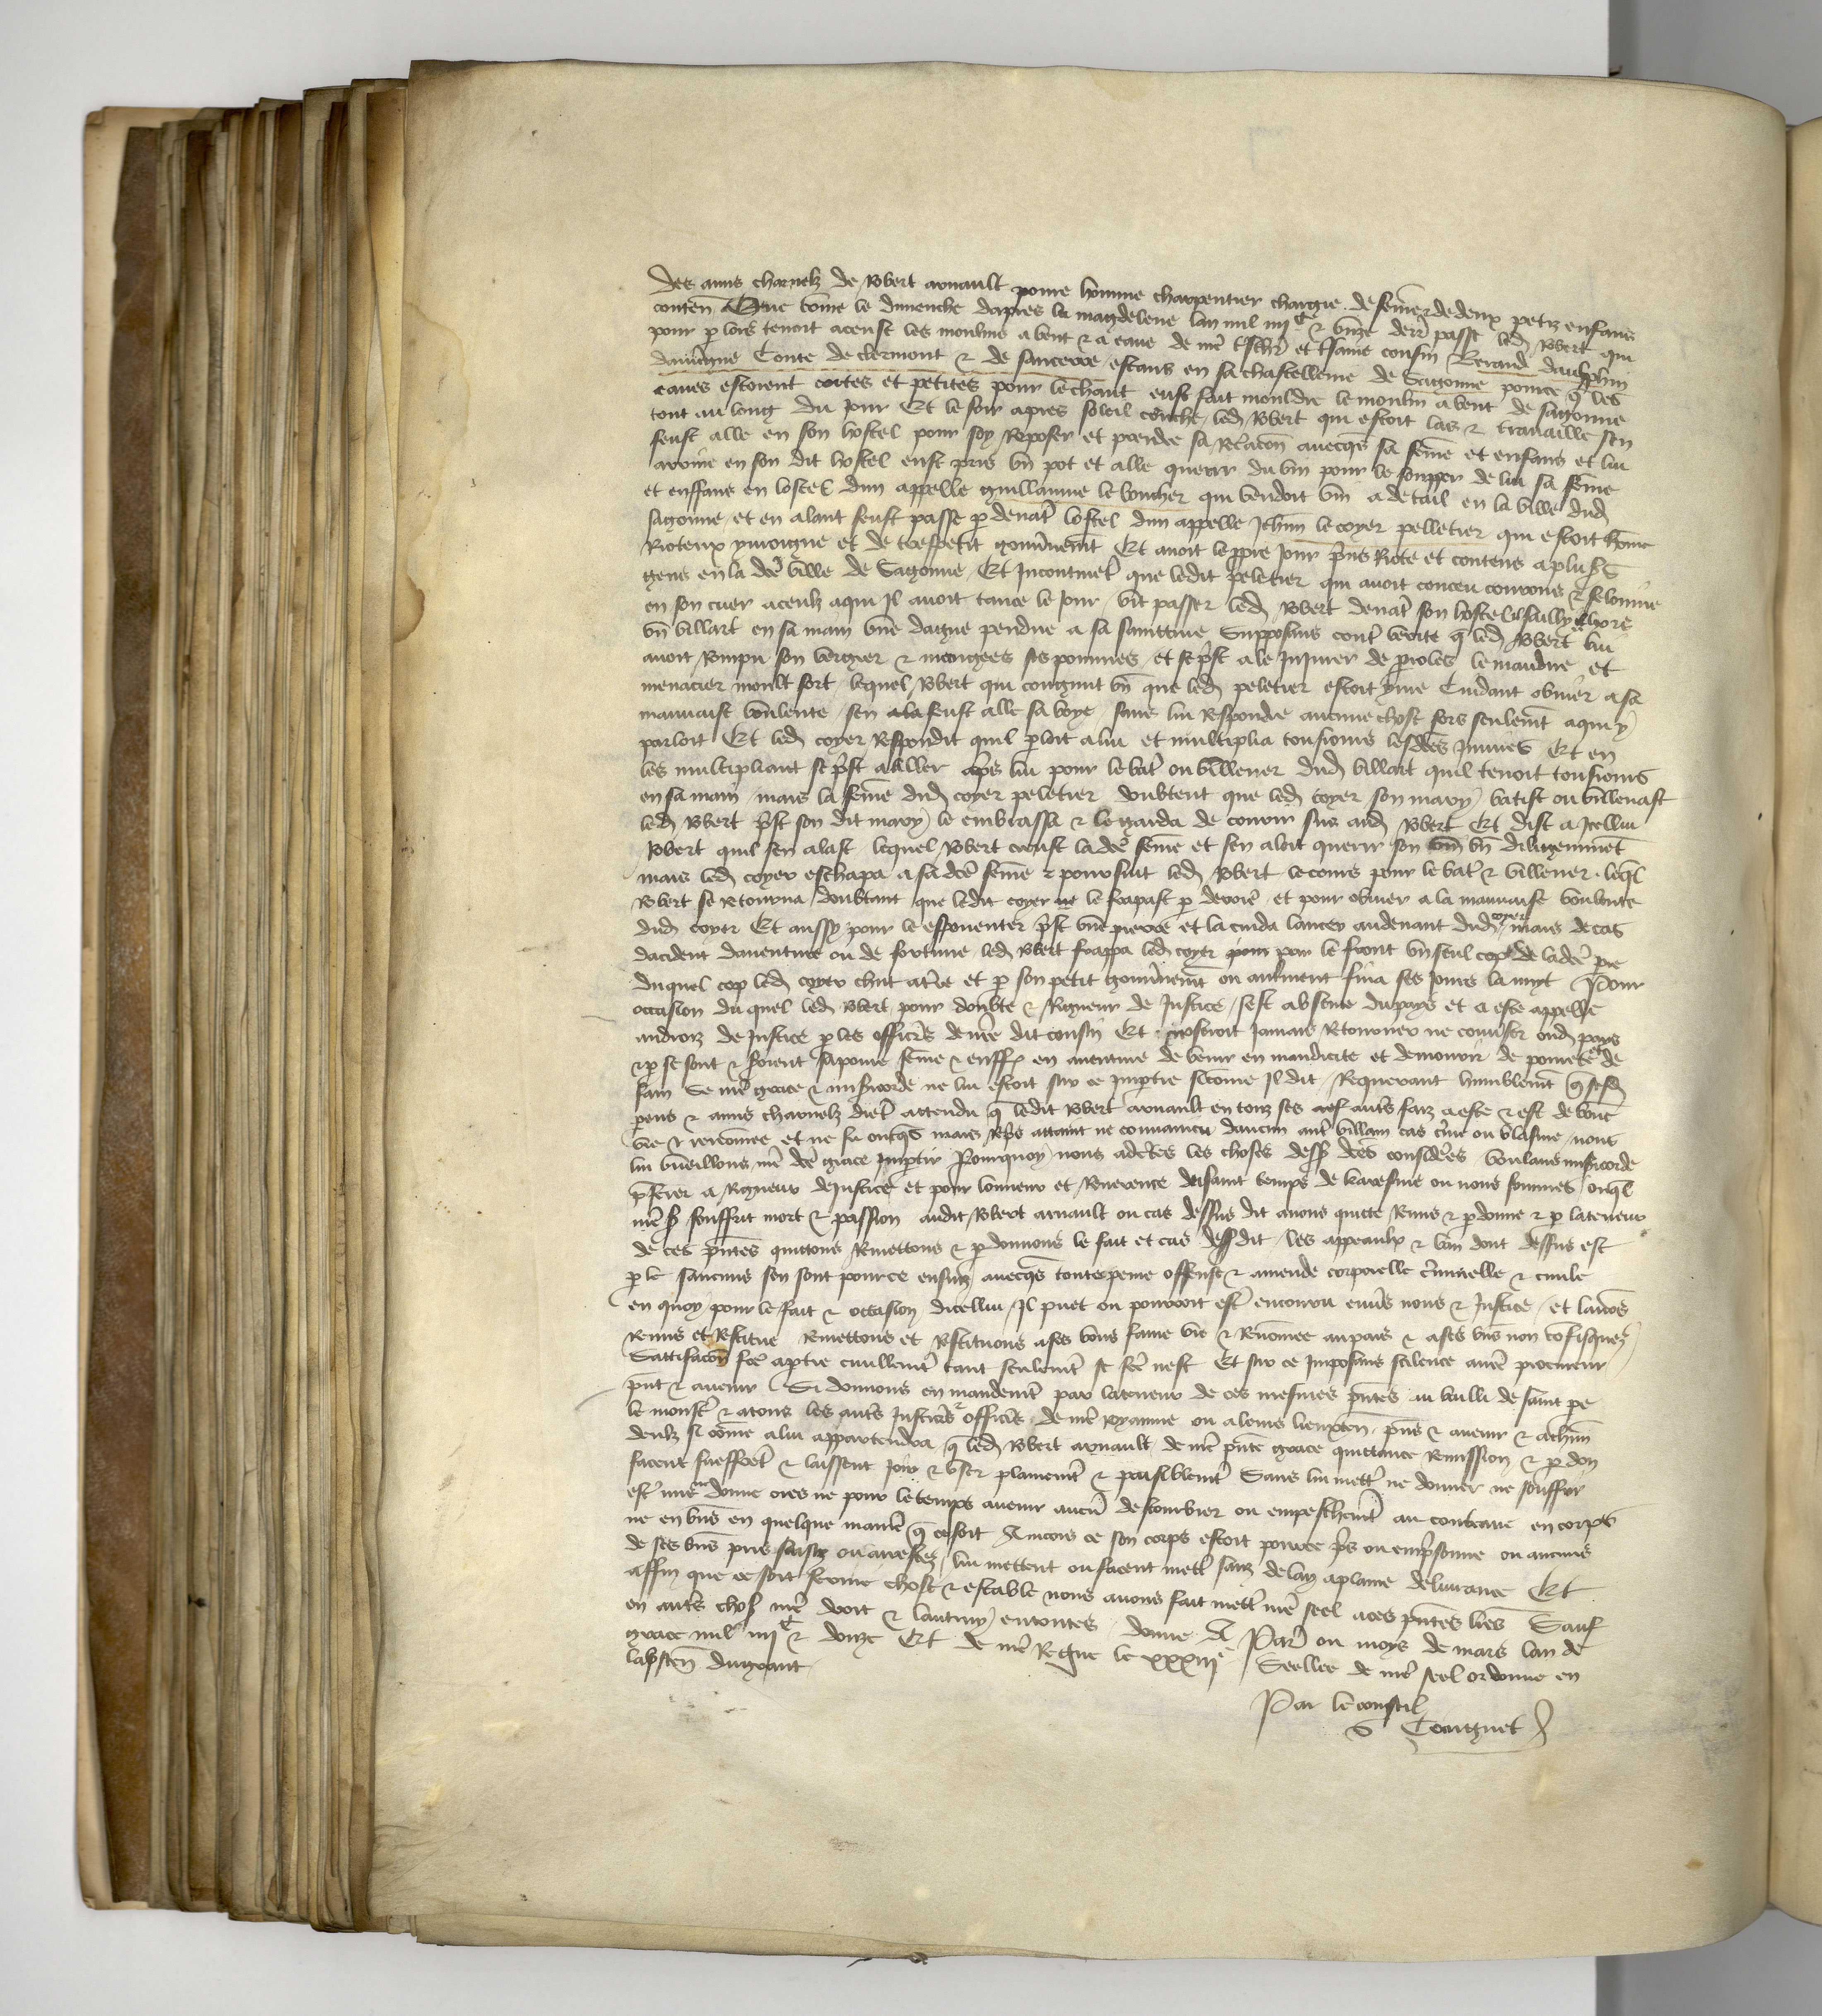 des amis charnelz de Robert arnault poure homme charpentier chargie de feme & de deux petiz enfans
conten Que come le dimenche dapres la magdelene lan mil iiijc & unze derr passe led Robert qui
pour p lors tenoit acense les moulins a vent & a eaue de nre tschr et tsame cousin Beraud daulphin
dauvgne Conte de clermont & de sancerre estans en sa chastellenie de Sagonne pource q les
eaues estoient cortes et petites pour lechant eust fait mouldre le moulin a vent de sagonne
tout au long du jour Et le soir apres soleil couche led Robert qui estoit las & travaille sen
feust alle en son hostel pour soy Reposer et prendre sa Refacon avecqs sa feme et enfans et lui
arrive en son dit hostel eust pris un pot et alle querir du vin pour le soupper de lui sa feme
et enffans en lostel dun appelle guillaume le boucher qui vendoit vin a detail en la ville dud
sagonne et en alant feust passe p devat lostel dun appelle Jehan le coyer pelletier qui estoit home
Rioteux yvrongne et de trespetit gouvnemt Et avoit le ppre jour pris Riote et contens a plusrs
gens en la dce ville de Sagonne Et Incontinet que ledit peletier qui avoit conceu courroux & felonnie
en son cuer a ceulx a qui Il avoit tance le jour vit passer led Robert devat son hostel il sailly hors
un billart en sa main une dague pendue a sa saintture Supposans cont verite q led Robert lui
avoit Rompu son vergier & mengees ses pommes et se prst a le Injurier de proles le maudire et
menacier moult fort lequel Robert qui congnut bn que led peletier estoit yvre Cuidant obvier a sa
mauvaise voulente sen ala feust alle sa voye sans lui Respondre aucune chose fors seulemt a qui
parloit Et led coyer Respondit quil ploit a lui et multiplia tousjours lesdces injures Et en
les multipliant se prst a aller aprs lui pour le batre ou villener dud billart quil tenoit tousjours
en sa main mais la feme dud coyer peletier doubtent que led coyer son mary batist ou villenast
led Robert prst son dit mary le embrassa & le garda de courir sus aud Robert Et dist a Icellui
Robert quil sen alast lequel Robert creust la dce feme et sen aloit querir son vin bn diligemmet
mais led coyer eschapa a sa dce feme & poursuit led Robert le cours pour le batre & villener leql
Robert se Retourna doubtant que ledit coyer ne le frapast p derrie et pour obvier a la mauvaise voulente
dud coyer Et aussy pour le espouenter prst une pierre et la cuida lancer audevant dud coyer mais de cas
dacident daventure ou de fortune led Robert frappa led coyer par le front un seul cop de ladce pre
duquel cop led coyer chut a tre et p son petit gouvnemt ou autment fina ses jours la nuyt Pour
occasion duquel led Robert pour doubte & Rigueur de Justice sest absente du pays et a este appelle
aux droiz de Justice p les officrs de nre dit cousin Et noseroit jamais Retourner ne converser oud pays
& p se sont & seroient sa poure feme & enff en aventure de venir en mandicite et demourir de povrete et de
fain Se nre grace & misicorde ne lui estoit sur ce Imptie sicome Il dit Requerant humblemt q sesd
pens & amis charnelz diet attendu q ledit Robert arnault en touz ses autrs faiz a este & est de bone
vie & renomee et ne fu oncqs mais Reprs attaint ne convaincu daucun aut villain cas crime ou blasme nous
lui vueillons nre dce grace Imptir Pourquoy nous adctes les choses dess dces considres voulans misicorde
pferer a Rigueur de Justice et pour lonneur et Reverence du saint temps de karesme ou nous sommes ouql
nre s souffrit mort & passion audit Robert arnault ou cas dessus dit avons quicte Remis & pdonne & p la teneur
de ces pntes quittons Remettons & pdonnons le fait et cas dess dit les appeaulx & ban dont dessus est
p le saucuns sen sont pource ensuiz avecqs toute peine offense & amende corporelle criminelle & civile
en quoy pour le fait & occasion dicellui Il puet ou pourroit est encouru envs nous & Justice et lavons
Remis et Restitue Remettons et Restituons a ses bons fame vie & Renomee au pais & a ses bns non cofisquez
Sattisfacon fce a ptie civillemt tant seulemt se fce nest Et sur ce Imposans silence a nre procureur
pnt & avenir Si donnons en mandemt par la teneur de ces mesmes pntes au bailli de saint pe
le monstr & a tous les autrs Justicrs & officrs de nre Royaume ou a leurs lieuxten pns & avenir & a chun
deulx si come a lui appartendra q led Robert arnault de nre pnte grace quittance Remission & pdon
facent sueffret & laissent joir & user plainemt & paisiblemt Sans lui mett ne donner ne souffrir
est mis ne donne ores ne pour le temps avenir aucu destourbier ou empeschemt au contraire en corps
ne en bns en quelque manre q ce soit Aincois ce son corps estoit pource prs ou emprisonne ou aucuns
de ses bns pris saisiz ou arrestez lui mettent ou facent mett sanz delay a plaine delivrance Et
affin que ce soit ferme chose & estable nous avons fait mett nre seel a ces pntes lres Sauf
en autrs chos nre droit & lautruy en toutes donne A Par ou moys de mars lan de
grace mil iiijc & douze Et de nre Regne le xxxiije Seellee de nre seel ordonne en
labsten du grant
Par le conseil
S Coingnet